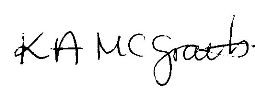 K A McGrath